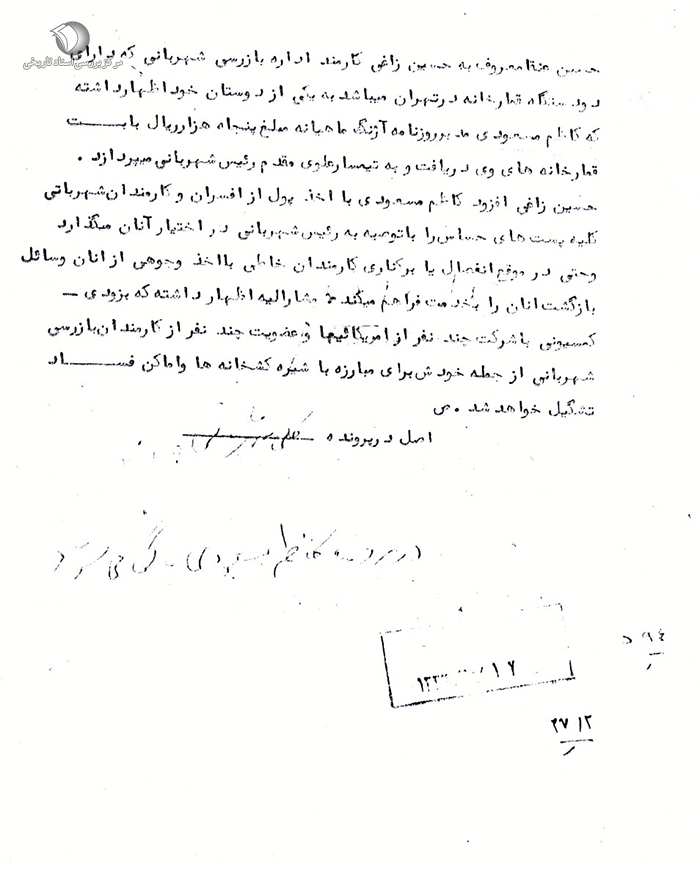 مرکز بررسی اسناد تاریخی
حسین عنقا معروف به حسین زاغی کارمند اداره بازرسی شهربانی که دارای
دودستگاه قمارخانه درتهران میباشد به یکی از دوستان خود اظهارداشته
که کاظم مسعودی مدیر روزنامه آژنگ ماهیانه مبلغ پنجاه هزارریال بابـــت
قمارخانه های وی دریافت و به تیمسار علوی مقدم رئیس شهربانی میپردازد .
حسین زاغی افزود کاظم مسعودی با اخذ پول از افسران و کارمندان شهربانی
کلیه پست های حساس را باتوصیه به رئیس شهربانی در اختیار آنان میگذارد
وحتی در موقع انفصال یا برکناری کارمندان خاطی بااخذ وجوهی ازانان وسائل
بازگشت انان را بخدمت فراهم میکند مشارالیه اظهار داشته که بزودی ــ
کمسیونی باشرکت چند نفر از امریکائیها و عضویت چند نفر از کارمندان بازرسی
شهربانی از جمله خودش برای مبارزه با شیره کشخانه ها واماکن فســـاد
تشگیل خواهد شد . ص
اصل در پرونده
در پرونده کاظم مسعودی
۹٤ د
۱۷
۲۷ ۱۲